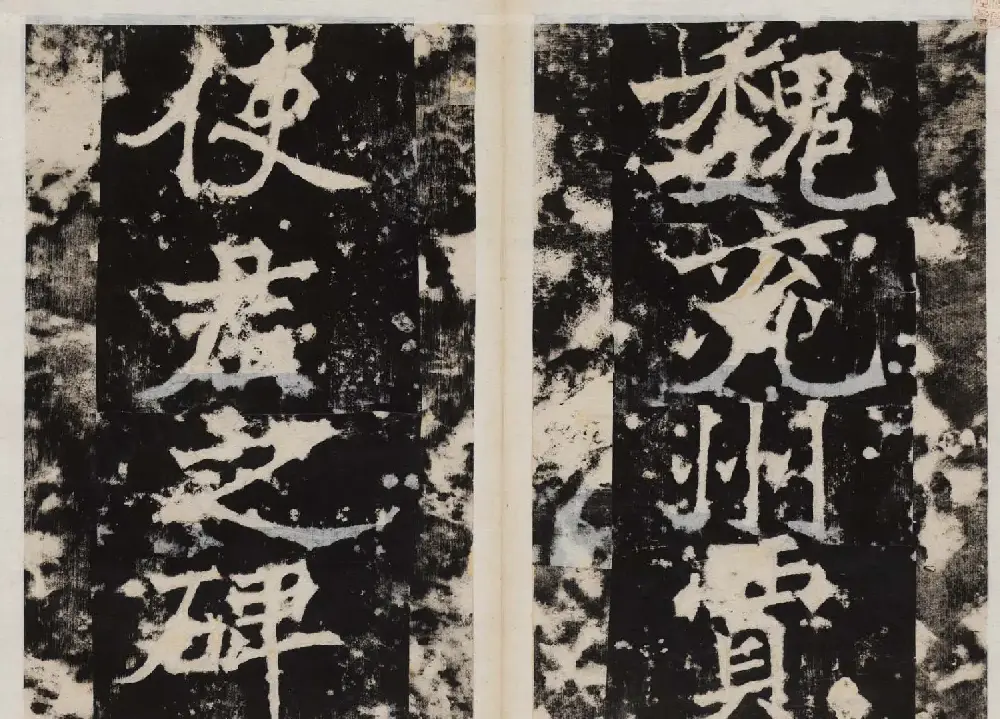 魏兗州賈
使君之碑